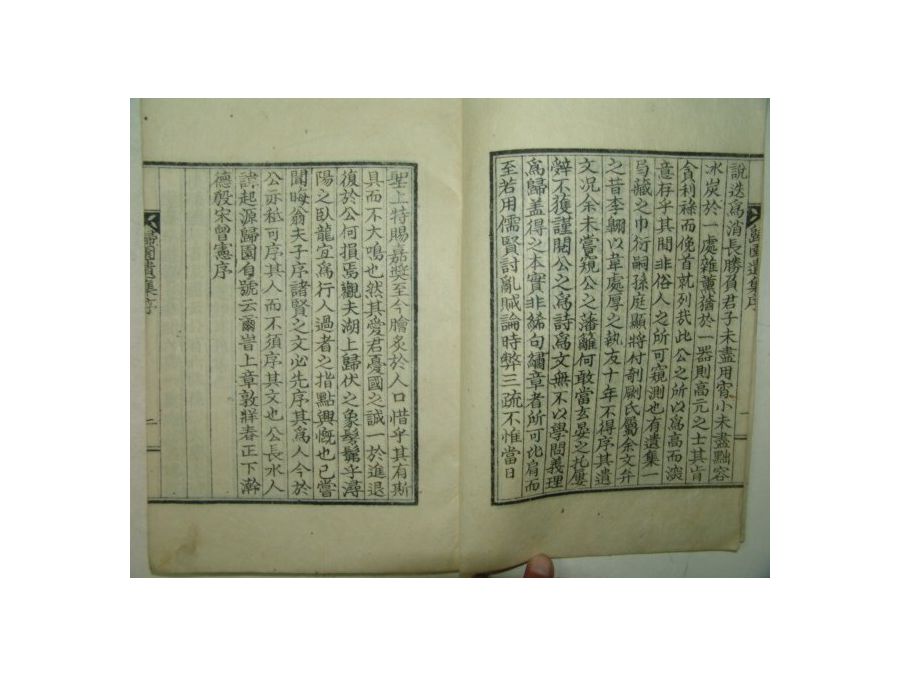 歸園遺集序
說迭爲消長勝負君子未盡用宵小未盡黜容
冰炭於一處雜薰蕕於一器則高元之士其肯
貪利祿而俛首就列哉此公之所以爲高而
意存乎其間非俗人之所可窺測也有遺集一
局藏之巾衍嗣孫庭顯將付剞劂氏屬余文弁
之昔李翶以韋處厚之執友十年不得序其遺
文况余未嘗窺公之藩離何敢當玄晏之托屢
辭不獲謹閱公之爲詩爲文無不以學問義理
爲歸盖得之本實非絺句繡章者所可比肩而
至若用儒賢討亂賊論時弊三疏不惟當日
聖上特賜嘉奬至今膾炙於人口惜乎其有斯
具而不大鳴也然其愛君憂國之誠一於進退
復於公何損焉觀夫湖上歸伏之象髣髴乎潯
陽之臥龍宜爲行人過者之指點興慨也已嘗
聞晦翁夫子序諸賢之文必先序其爲人今於
公亦秪可序其人而不須序其文也公長水人
諱起源歸園自號云爾旹上章敦牂春正下澣
德殷宋曾憲序
歸園遺集序
二